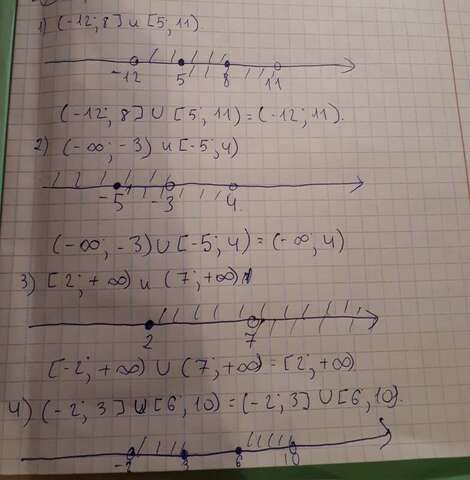 1) (-12; 8] и [5, 11)
-12 5 8 11
(-12; 8] U [5; 11) = (-12; 11).
2) (-∞; -3) и [-5; 4)
-5 -3 4
(-∞; -3) U [-5; 4) = (-∞; 4)
3) [2; +∞) и (7; +∞)
2 7
[-2; +∞) U (7; +∞) = [2; +∞).
4) (-2; 3] U [6, 10) = (-2; 3] U [6, 10).
-2 3 6 10